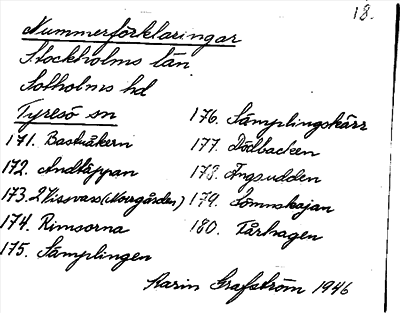 18.
Nummerförklaringar
Stockholms län
Sotholms hd
Tyresö sn
171. Bastuåkern
172. Andtäppan
173. 2 Vissvass (Norrgården)
174. Rimsorna
175. Sämplingen
176. Sämplingskärr
177. Dödbacken
178. Ängsudden
179. Tomnskajan
180. Fårhagen
Karin Grafström 1946